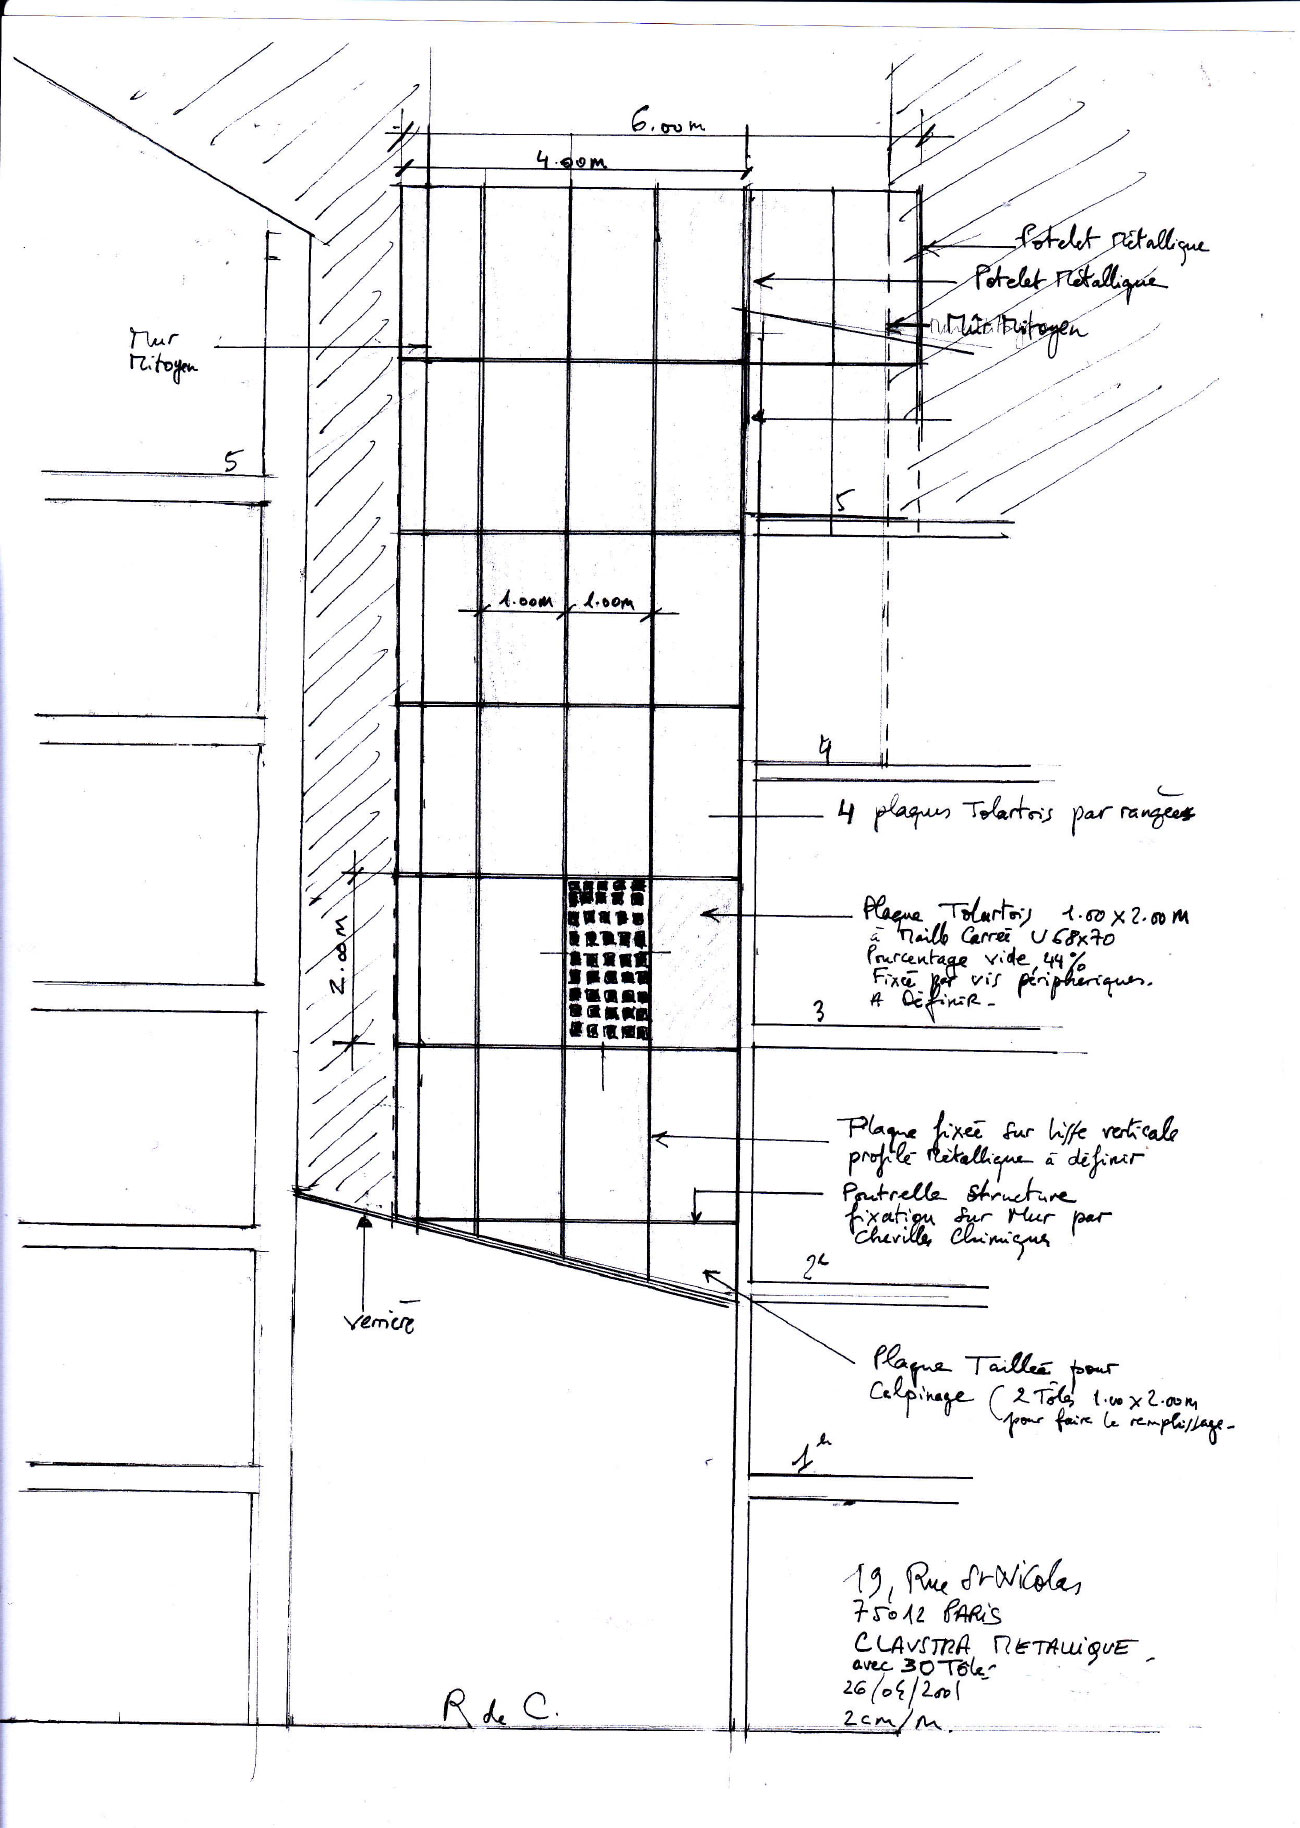 6.00m
4.00m
Potelet Métallique
Potelet Métallique
Mur Mitoyen
Mur
Mitoyen
5
5
1.00m 1.00m
4
4 plaques Tolartois par rangées
Plaque Tolartois 1.00 x 2.00 m
à Maille Carrée U 68x70
Pourcentage vide 44%
Fixée par vis périphériques.
A Définir-
2.00m
3
Plaque fixée sur lisse verticale
profilé Métallique à définir
Poutrelle Structure
fixation sur Mur par
Chevilles Chimiques
2e
verrière
Plaque Taillée pour
Calpinage (2 Tôles 1.00 x 2.00m
pour faire le remplissage-
1er
19, Rue St Nicolas
75012 PARIS
CLAUSTRA METALLIQUE
avec 30 Tôles
2001
2cm/m.
R de C.